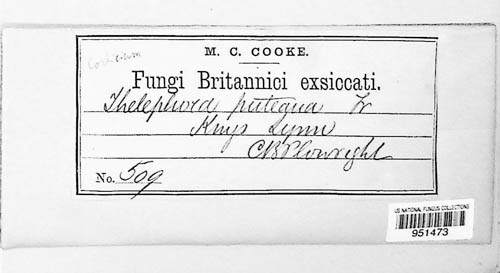 Corticium
M. C. COOKE.
Fungi Britannici exsiccati.
Thelephora puteana Fr
Kings Lynn
C B Plowright
No. 509
US NATIONAL FUNGUS COLLECTIONS
951473